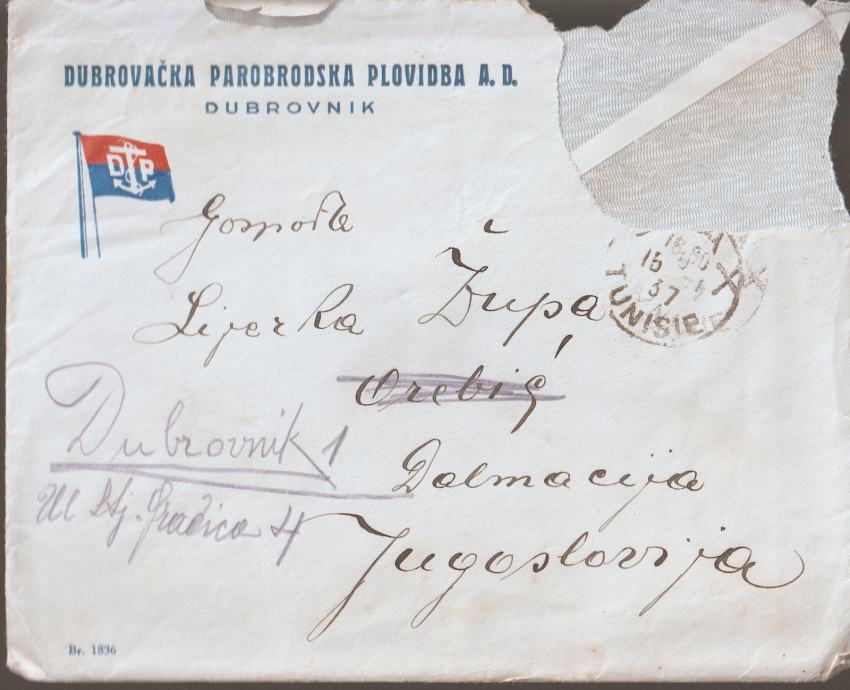 DUBROVAČKA PAROBRODSKA PLOVIDBA A. D.
DUBROVNIK
D P
Gospođa
Ljerka Župa
Orebić
Dubrovnik 1
Dalmacija
Ul Stj. Gradića 4
Jugoslovija
15
37
TUNISIE
Br. 1836